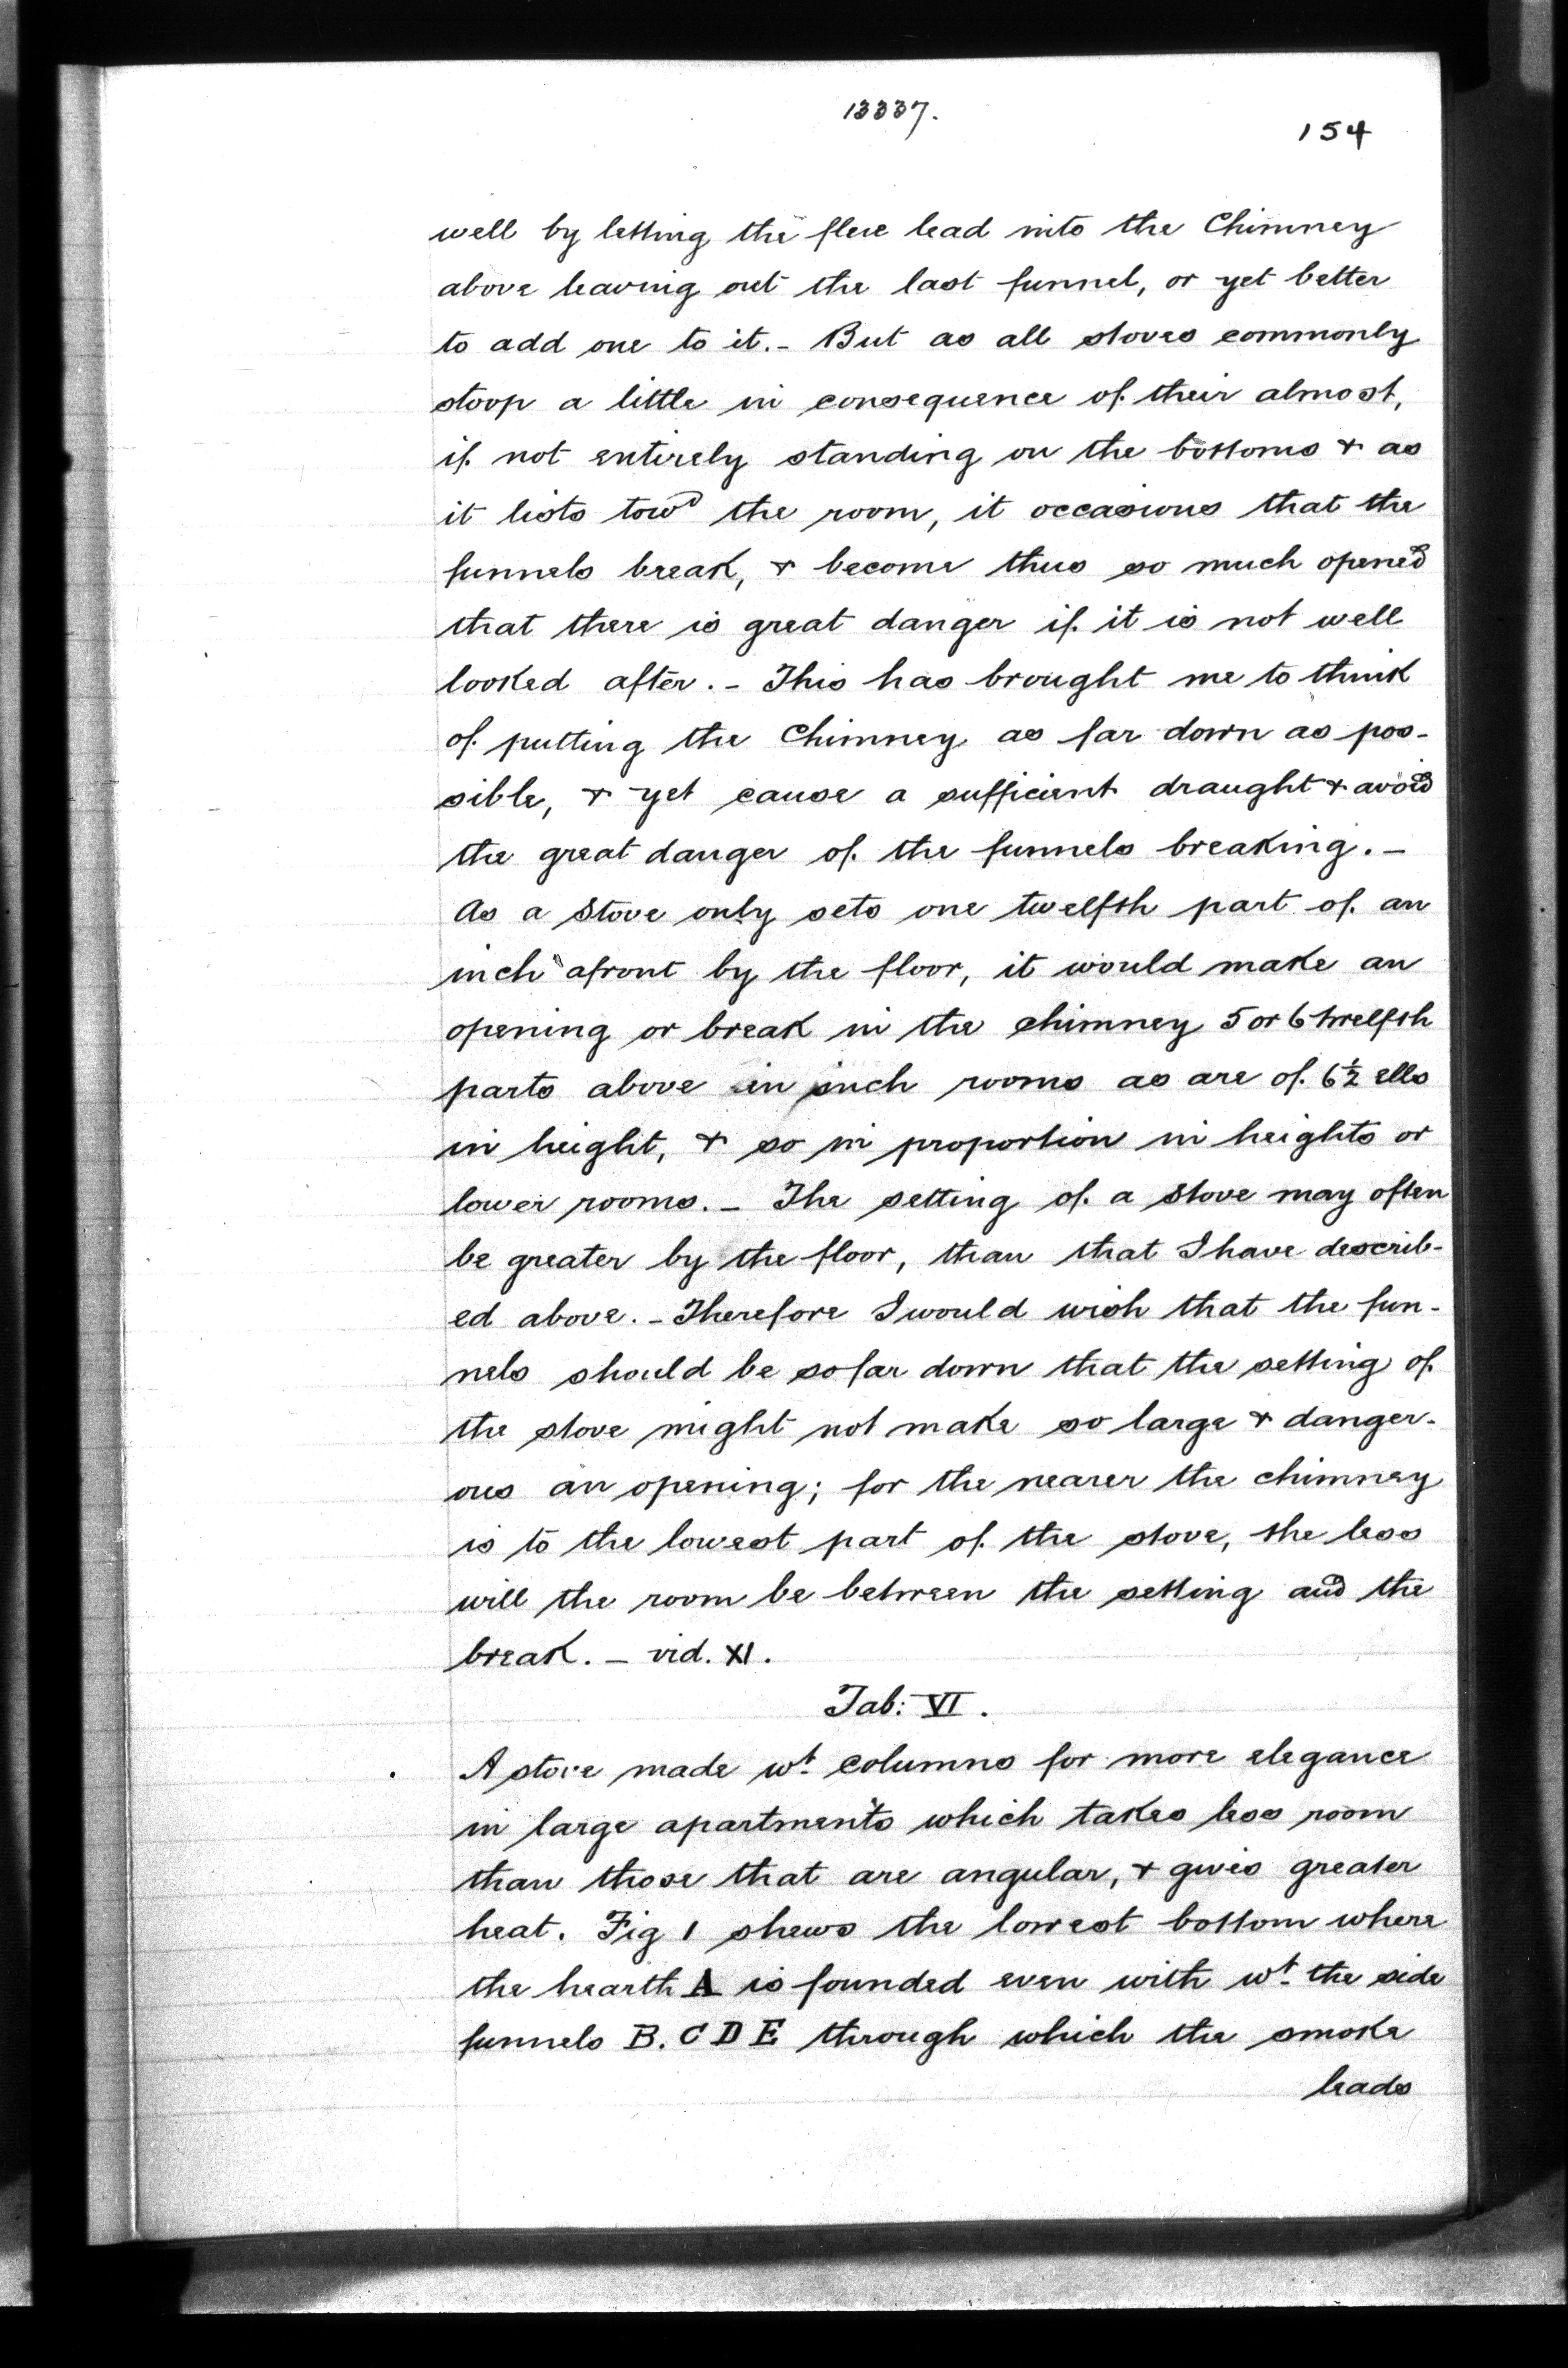 13337.
154
well by letting the flue lead into the Chimney
above leaving out the last funnel, or yet better
to add one to it. – But as all stoves commonly
stoop a little in consequence of their almost,
if not entirely standing on the bottoms & as
it lists tow^d the room, it occasions that the
funnels break, & become thus so much opened
that there is great danger if it is not well
looked after. – This has brought me to think
of putting the Chimney as far down as pos-
sible, & yet cause a sufficient draught & avoid
the great danger of the funnels breaking. –
As a Stove only sets one twelfth part of an
inch afront by the floor, it would make an
opening or break in the chimney 5 or 6 twelfth
parts above in such rooms as are of 6½ ells
in height, & so in proportion in heights or
lower rooms. – The setting of a Stove may often
be greater by the floor, than that I have describ-
ed above. – Therefore I would wish that the fun-
nels should be so far down that the setting of
the stove might not make so large & danger-
ous an opening; for the nearer the chimney
is to the lowest part of the stove, the less
will the room be between the setting and the
break. – vid. XI.
Tab: VI.
A stove made w^t. columns for more elegance
in large apartments which takes less room
than those that are angular, & gives greater
heat. Fig 1 shews the lowest bottom where
the hearth A is founded even with w^t. the side
funnels B. C D E through which the smoke
leads